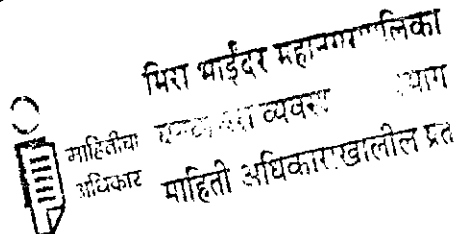 मिरा भाईंदर महानगरपालिका
व्यवस्
माहितीचा
अधिकार
माहिती अधिकाराखालील प्रत